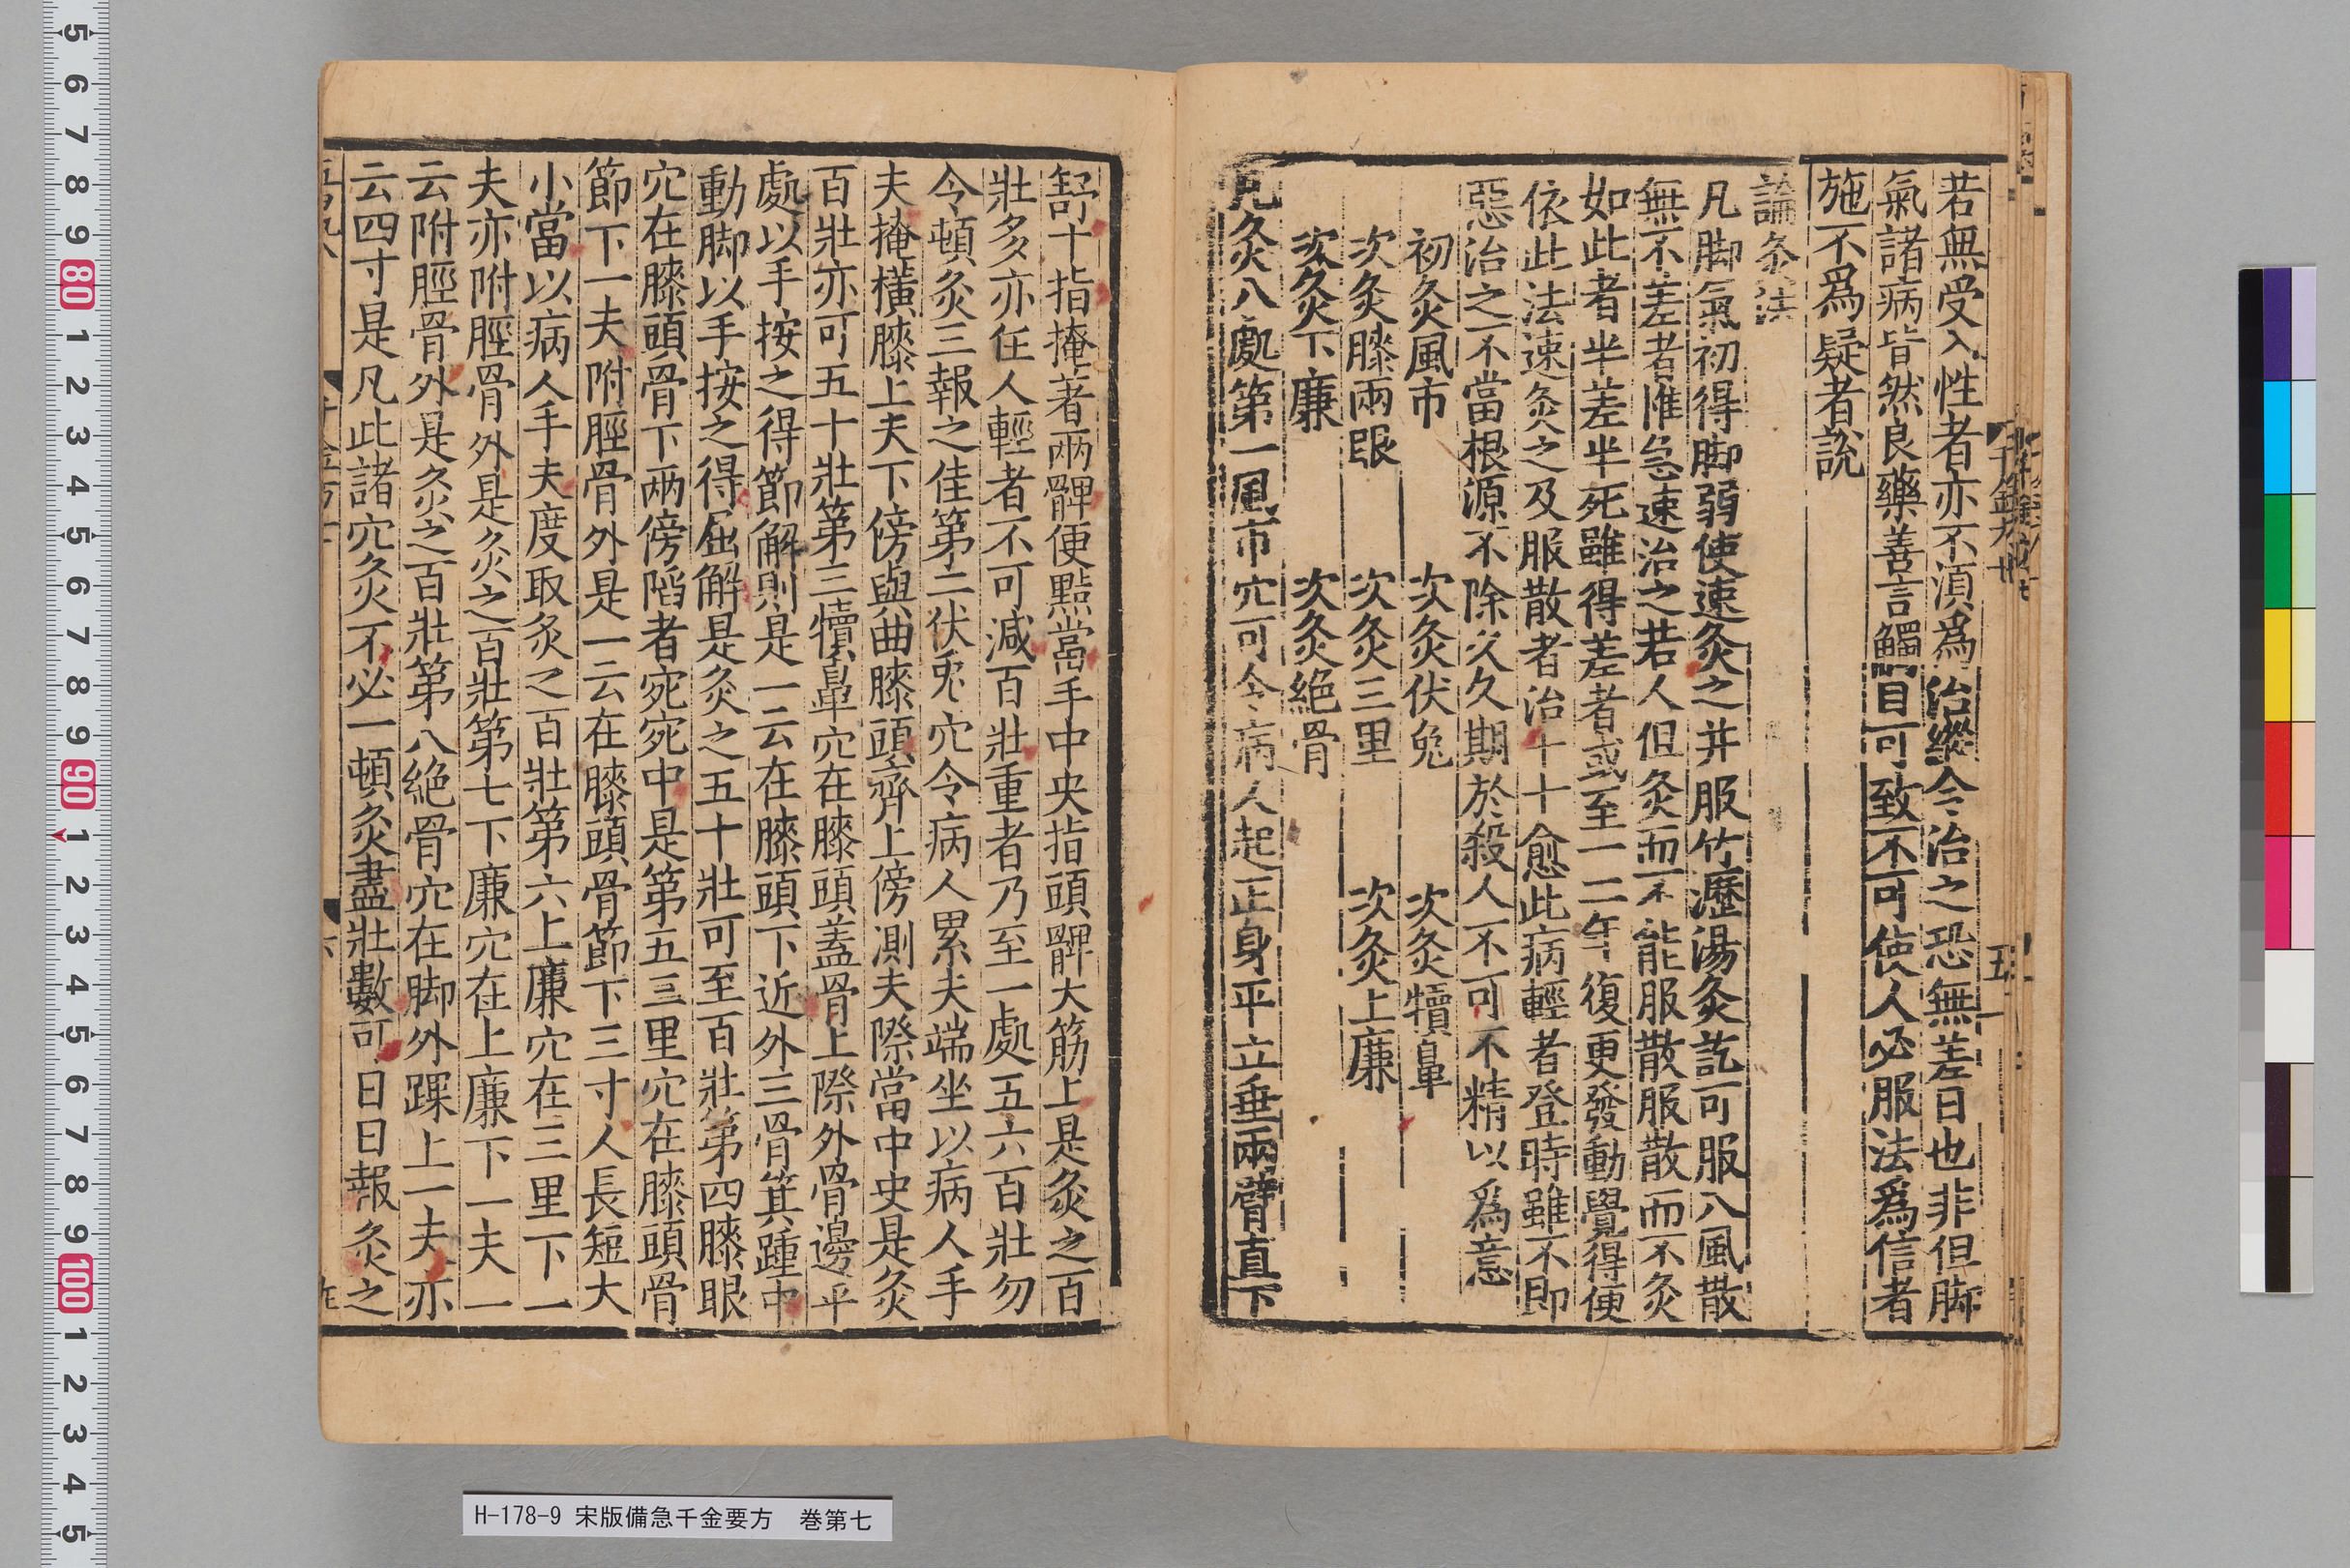 若無受入性者亦不湏爲治縱令治之恐無差日也非但脚
氣諸病皆然良藥善言觸目可致不可使人必服法爲信者
施不爲疑者說
論灸法
凡脚氣初得脚弱使速灸之并服竹瀝湯灸訖可服八風散
無不差者惟急速治之若人但灸而不能服散服散而不灸
如此者半差半死雖得差者或至一二年復更發動覺得便
依此法速灸之及服散者治十十愈此病輕者登時雖不即
惡治之不當根源不除久久期於殺人不可不精以爲意
初灸風市　次灸伏兔　次灸犢鼻
次灸膝兩眼　次灸三里　次灸上廉
次灸下廉　次灸絕骨
凡灸八處第一風市穴可令病人起正身平立垂兩臂直下
舒十指掩著兩髀便點當手中央指頭髀大筋上是灸之百
壯多亦任人輕者不可減百壯重者乃至一處五六百壯勿
令頓灸三報之佳第二伏兎穴令病人累夫端坐以病人手
夫掩横膝上夫下傍與曲膝頭齊上傍測夫際當中史是灸
百壯亦可五十壯第三犢鼻穴在膝頭蓋骨上際外骨邊平
處以手按之得節解則是一云在膝頭下近外三骨箕踵中
動脚以手按之得屈解是灸之五十壯可至百壯第四膝眼
穴在膝頭骨下兩傍陷者宛宛中是第五三里穴在膝頭骨
節下一夫附脛骨外是一云在膝頭骨節下三寸人長短大
小當以病人手夫度取灸之百壯第六上廉穴在三里下一
夫亦附脛骨外是灸之百壯第七下廉穴在上廉下一夫一
云附脛骨外是灸之百壯第八絕骨穴在脚外踝上一夫亦
云四寸是凡此諸穴灸不必一頓灸盡壯數可日日報灸之
H-178-9 宋版備急千金要方　巻第七